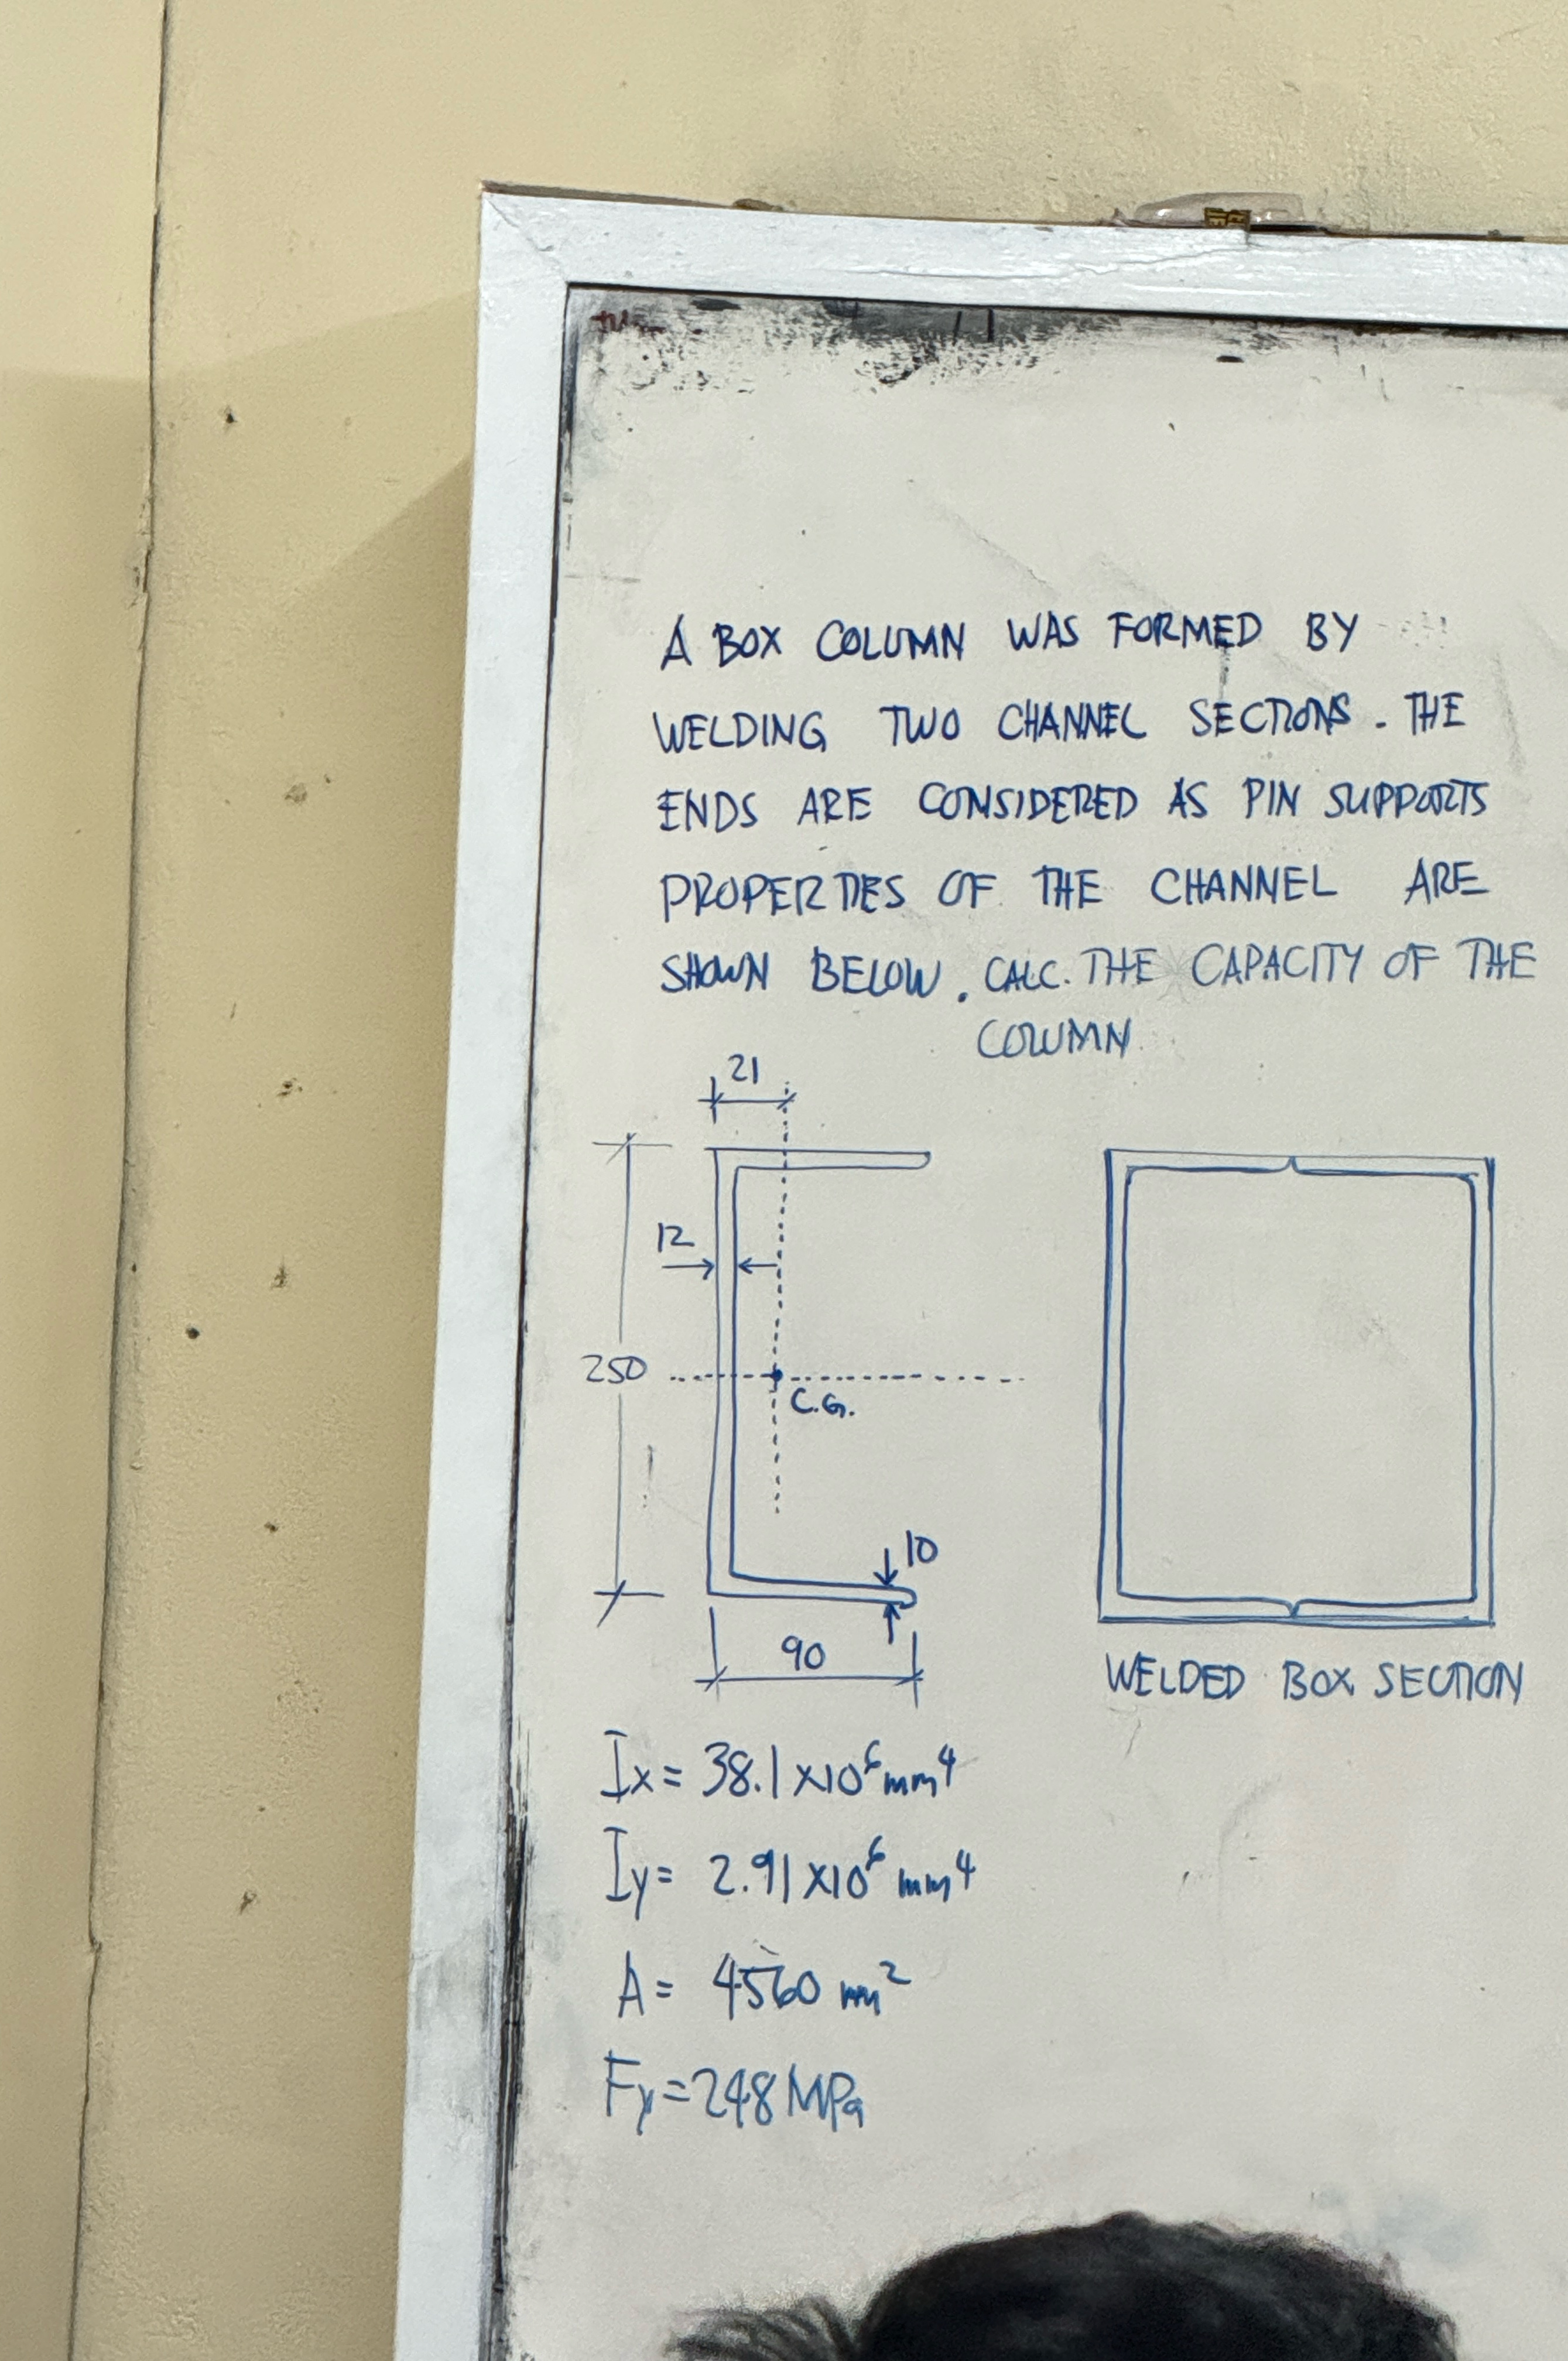 A BOX COLUMN WAS FORMED BY
WELDING TWO CHANNEL SECTIONS. THE
ENDS ARE CONSIDERED AS PIN SUPPORTS
PROPERTIES OF THE CHANNEL ARE
SHOWN BELOW. CALC. THE CAPACITY OF THE
COLUMN
21
12
250
C.G.
10
90
WELDED BOX SECTION
Ix = 38.1 x10⁶ mm⁴
Iy = 2.91 x10⁶ mm⁴
A = 4560 mm²
Fy = 248 MPa